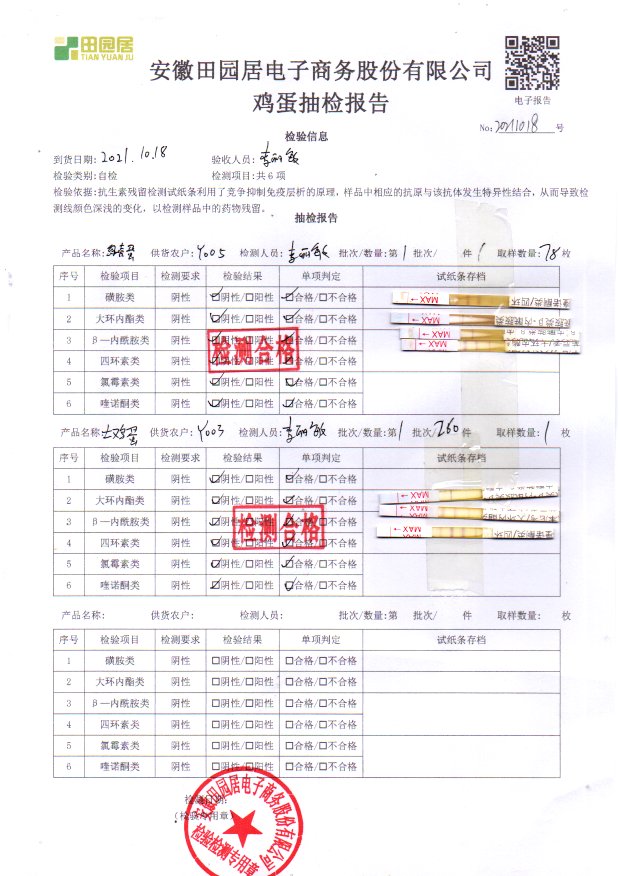 田园居
TIAN YUAN JU
安徽田园居电子商务股份有限公司
鸡蛋抽检报告
电子报告
No: 20211018 号
检验信息
到货日期: 2021.10.18 验收人员: 李丽敏
检验类别:自检 检测项目:共6项
检验依据:抗生素残留检测试纸条利用了竞争抑制免疫层析的原理,样品中相应的抗原与该抗体发生特异性结合,从而导致检
测线颜色深浅的变化,以检测样品中的药物残留。
抽检报告
产品名称: 供货农户: Y005 检测人员: 李丽敏 批次/数量:第 1 批次/ 件 1 取样数量: 78 枚
序号 检验项目 检测要求 检验结果 单项判定 试纸条存档
1 磺胺类 阴性 ☑阴性/□阳性 ☑合格/□不合格
2 大环内酯类 阴性 ☑阴性/□阳性 ☑合格/□不合格
3 β—内酰胺类 阴性 ☑阴性/□阳性 ☑合格/□不合格
4 四环素类 阴性 ☑阴性/□阳性 ☑合格/□不合格
5 氯霉素类 阴性 ☑阴性/□阳性 ☑合格/□不合格
6 喹诺酮类 阴性 ☑阴性/□阳性 ☑合格/□不合格
检测合格
MAX
MAX
MAX
MAX
产品名称: 土鸡蛋 供货农户: Y003 检测人员: 李丽敏 批次/数量:第 1 批次/ 260 件 取样数量: 1 枚
序号 检验项目 检测要求 检验结果 单项判定 试纸条存档
1 磺胺类 阴性 ☑阴性/□阳性 ☑合格/□不合格
2 大环内酯类 阴性 ☑阴性/□阳性 ☑合格/□不合格
3 β—内酰胺类 阴性 ☑阴性/□阳性 ☑合格/□不合格
4 四环素类 阴性 ☑阴性/□阳性 ☑合格/□不合格
5 氯霉素类 阴性 ☑阴性/□阳性 ☑合格/□不合格
6 喹诺酮类 阴性 ☑阴性/□阳性 ☑合格/□不合格
检测合格
MAX
MAX
MAX
产品名称: 供货农户: 检测人员: 批次/数量:第 批次/ 件 取样数量: 枚
序号 检验项目 检测要求 检验结果 单项判定 试纸条存档
1 磺胺类 阴性 □阴性/□阳性 □合格/□不合格
2 大环内酯类 阴性 □阴性/□阳性 □合格/□不合格
3 β—内酰胺类 阴性 □阴性/□阳性 □合格/□不合格
4 四环素类 阴性 □阴性/□阳性 □合格/□不合格
5 氯霉素类 阴性 □阴性/□阳性 □合格/□不合格
6 喹诺酮类 阴性 □阴性/□阳性 □合格/□不合格
检测日期:
(检验专用章)
安徽田园居电子商务股份有限公司
检验检测专用章